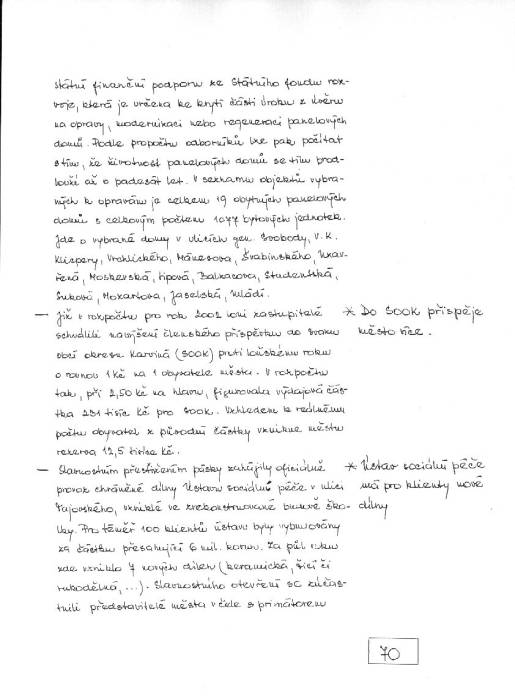 státní finanční podporu ze Státního fondu roz-
voje, která je určena ke krytí části úroku z úvěru
na opravy, modernizaci nebo regeneraci panelových
domů. Podle propočtu odborníků lze pak počítat
s tím, že životnost panelových domů se tím prod-
louží až o padesát let. V seznamu objektů vybra-
ných k opravám je celkem 19 obytných panelových
domů s celkovým počtem 1077 bytových jednotek.
Jde o vybrané domy v ulicích gen. Svobody, V. K.
Klicpery, Vrchlického, Mánesova, Švabinského, Uzav-
řená, Moskevská, Lipová, Balzacova, Studentská,
Suková, Mozartova, Jaselská, Mládí.
— Již v rozpočtu pro rok 2002 loni zastupitelé
schválili navýšení členského příspěvku do Svazu
obcí okresu Karviná (SOOK) proti loňskému roku
o rovnou 1 Kč na 1 obyvatele města. V rozpočtu
tak, při 2,50 Kč na hlavu, figurovala výdajová část-
ka 231 tisíc Kč pro SOOK. Vzhledem k reálnému
počtu obyvatel z původní částky vznikne městu
rezerva 12,5 tisíce Kč.
* Do SOOK přispěje
město více.
— Slavnostním přestřižením pásky zahájily oficiálně
provoz chráněné dílny Ústavu sociální péče v ulici
Fajovského, vzniklé ve zrekonstruované budově ško-
lky. Pro téměř 100 klientů ústavu byly vybudovány
za částku přesahující 6 mil. korun. Za půl roku
zde vzniklo 7 nových dílen (keramická, šicí či
rukodělná, ...). Slavnostního otevření se zúčas-
tnili představitelé města v čele s primátorem
* Ústav sociální péče
má pro klienty nové
dílny
70